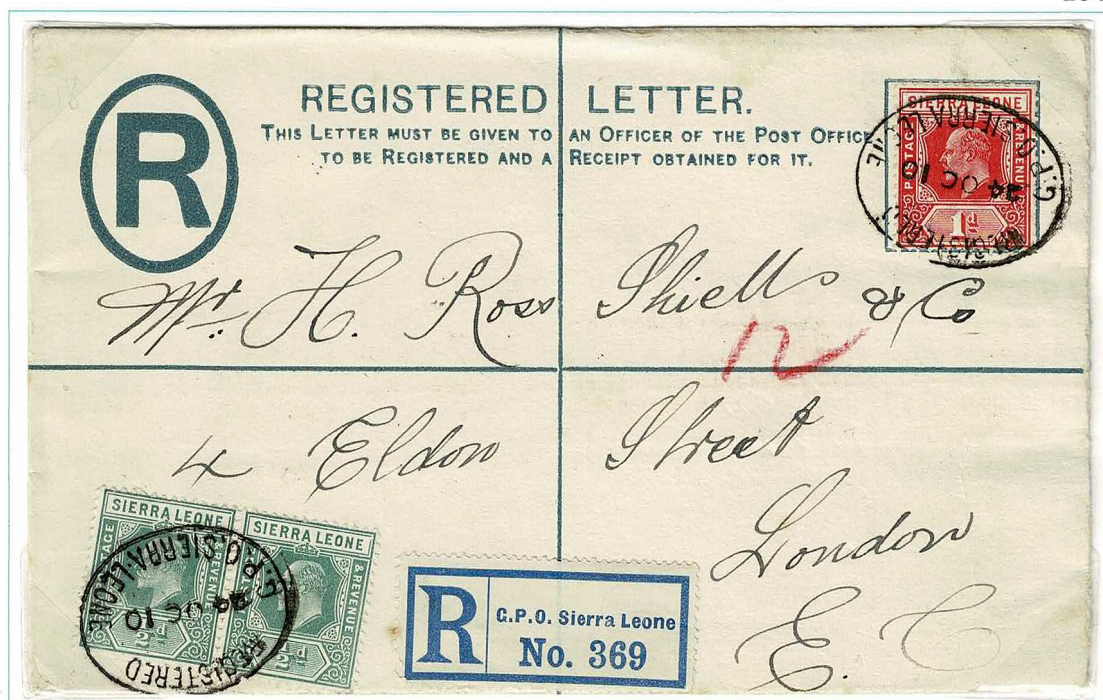 REGISTERED LETTER.
THIS LETTER MUST BE GIVEN TO AN OFFICER OF THE POST OFFICE
TO BE REGISTERED AND A RECEIPT OBTAINED FOR IT.
R
SIERRA LEONE
POSTAGE & REVENUE
1d
G.P.O. SIERRA LEONE
24 OC 10
Mr. H. Ross Shiells & Co
12
4 Eldon Street
London
E. C
SIERRA LEONE
POSTAGE & REVENUE
½d
SIERRA LEONE
POSTAGE & REVENUE
½d
G.P.O. SIERRA-LEONE
24 OC 10
REGISTERED
R
G.P.O. Sierra Leone
No. 369